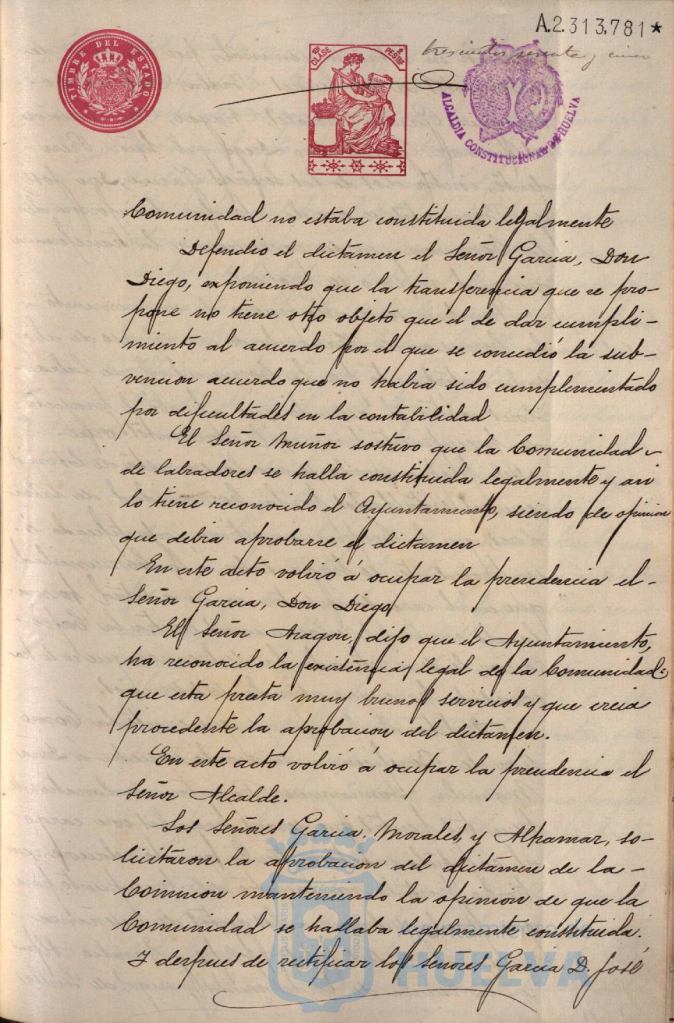 A.2.313.781*
TIMBRE DEL ESTADO
10ª CLASE
PESETA
trescientos sesenta y cinco
ALCALDIA CONSTITUCIONAL DE HUELVA
Comunidad no estaba constituida legalmente
Defendio el dictamen el Señor Garcia, Don
Diego, exponiendo que la transferencia que se pro-
pone no tiene otro objeto que el de dar cumpli-
miento al acuerdo por el que se concedió la sub-
vencion acuerdo que no habia sido cumplimentado
por dificultades en la contabilidad
El Señor Muñoz sostuvo que la Comunidad
de labradores se halla constituida legalmente y asi
lo tiene reconocido el Ayuntamiento, siendo de opinion
que debia aprobarse el dictamen
En este acto volvió á ocupar la presidencia el
Señor Garcia, Don Diego
El Señor Aragon, dijo que el Ayuntamiento,
ha reconocido la existencia legal de la Comunidad;
que esta presta muy buenos servicios y que creia
procedente la aprobacion del dictamen.
En este acto volvió á ocupar la presidencia el
Señor Alcalde.
Los Señores Garcia Morales, y Alpamar, so-
licitaron la aprobacion del dictamen de la
Comision manteniendo la opinion de que la
Comunidad se hallaba legalmente constituida.
Y despues de rectificar los Señores Garcia D. José
HUELVA